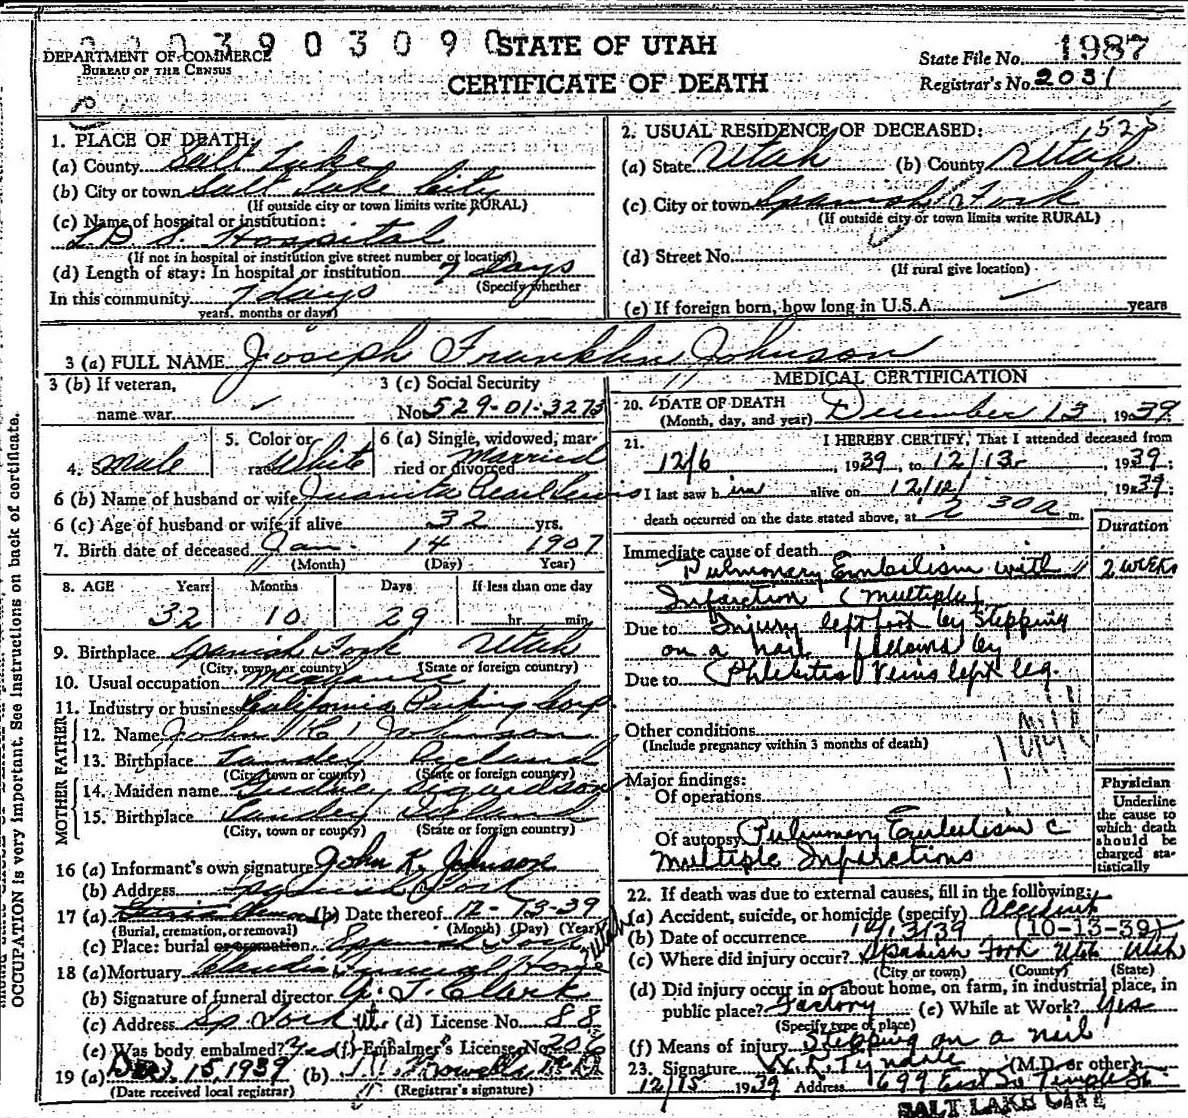 0003903090 STATE OF UTAH
DEPARTMENT OF COMMERCE
BUREAU OF THE CENSUS
CERTIFICATE OF DEATH
State File No. 1987
Registrar's No. 2031
1. PLACE OF DEATH:
(a) County Salt Lake
(b) City or town Salt Lake City
(If outside city or town limits write RURAL)
(c) Name of hospital or institution:
L D S. Hospital
(If not in hospital or institution give street number or location)
(d) Length of stay: In hospital or institution 7 days
(Specify whether
In this community 7 days
years. months or days)
2. USUAL RESIDENCE OF DECEASED:
(a) State Utah (b) County Utah
(c) City or town Spanish Fork
(If outside city or town limits write RURAL)
(d) Street No.
(If rural give location)
(e) If foreign born, how long in U.S.A. years
3 (a) FULL NAME Joseph Franklin Johnson
3 (b) If veteran,
name war
3 (c) Social Security
No. 529-01-3273
4. Male
5. Color or
race White
6 (a) Single, widowed, mar-
ried or divorced Married
6 (b) Name of husband or wife Juanita Pearl Lewis
6 (c) Age of husband or wife if alive 32 yrs.
7. Birth date of deceased Jan. 14 1907
(Month) (Day) Year)
8. AGE Years Months Days If less than one day
32 10 29 hr. min.
9. Birthplace Spanish Fork Utah
(City, town, or county) (State or foreign country)
10. Usual occupation
11. Industry or business California Packing Corp
FATHER
12. Name John Johnson
13. Birthplace
(City, town or county) (State or foreign country)
MOTHER
14. Maiden name
15. Birthplace
(City, town or county) (State or foreign country)
16 (a) Informant's own signature John K. Johnson
(b) Address Spanish Fork
17 (a) (b) Date thereof 12-13-39
(Burial, cremation, or removal) (Month) (Day) (Year)
(c) Place: burial or cremation Spanish Fork
18 (a) Mortuary Claudin Funeral Home
(b) Signature of funeral director A. J. Clark
(c) Address Sp Fork Ut. (d) License No. 88
(e) Was body embalmed? Yes (f) Embalmer's License No. 206
19 (a) Dec. 15, 1939 (b)
(Date received local registrar) (Registrar's signature)
MEDICAL CERTIFICATION
20. DATE OF DEATH
(Month, day, and year) December 13, 1939
21. I HEREBY CERTIFY, That I attended deceased from
12/6, 1939, to 12/13, 1939;
I last saw him alive on 12/12/, 1939;
death occurred on the date stated above, at 2 30a m.
Duration
Immediate cause of death
Pulmonary Embolism with 2 weeks
Infarction (multiple)
Due to Injury left foot by Stepping
on a nail followed by
Due to Phlebitis Veins left leg.
Other conditions
(Include pregnancy within 3 months of death)
Major findings:
Of operations
Of autopsy Pulmonary Embolism c
Multiple Infarctions
Physician
Underline
the cause to
which death
should be
charged sta-
tistically
22. If death was due to external causes, fill in the following:
(a) Accident, suicide, or homicide (specify) Accident
(b) Date of occurrence 10/13/39 (10-13-39)
(c) Where did injury occur? Spanish Fork Utah Utah
(City or town) (County) (State)
(d) Did injury occur in or about home, on farm, in industrial place, in
public place? Factory (e) While at Work? Yes
(Specify type of place)
(f) Means of injury Stepping on a nail
23. Signature W. R. Tyndale (M.D. or other)
12/15 1939 Address 1699 East So Temple St
SALT LAKE CITY
OCCUPATION is very important. See instructions on back of certificate.